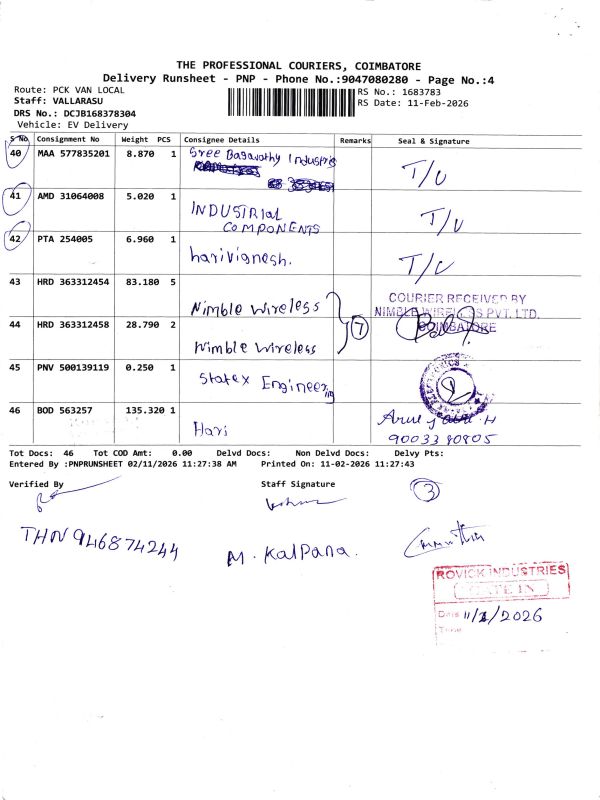 THE PROFESSIONAL COURIERS, COIMBATORE
Delivery Runsheet - PNP - Phone No.:9047080280 - Page No.:4
Route: PCK VAN LOCAL
RS No.: 1683783
Staff: VALLARASU
RS Date: 11-Feb-2026
DRS No.: DCJB168378304
Vehicle: EV Delivery
S No Consignment No Weight PCS Consignee Details Remarks Seal & Signature
40 MAA 577835201 8.870 1 Sree Bagavathy Industries T/U
41 AMD 31064008 5.020 1 INDUSTRIAL COMPONENTS T/U
42 PTA 254005 6.960 1 harivignesh. T/U
43 HRD 363312454 83.180 5 Nimble wireless
COURIER RECEIVED BY
NIMBLE WIRELESS PVT. LTD.
COIMBATORE
44 HRD 363312458 28.790 2 Nimble wireless 7
45 PNV 500139119 0.250 1 Statex Engineering 2
46 BOD 563257 135.320 1 Hari
Tot Docs: 46 Tot COD Amt: 0.00 Delvd Docs: Non Delvd Docs: Delvy Pts:
Entered By :PNPRUNSHEET 02/11/2026 11:27:38 AM Printed On: 11-02-2026 11:27:43
Verified By Staff Signature 3
THN 946874244 M. Kalpana.
ROVICK INDUSTRIES
GATE IN
Date 11/2/2026
Time